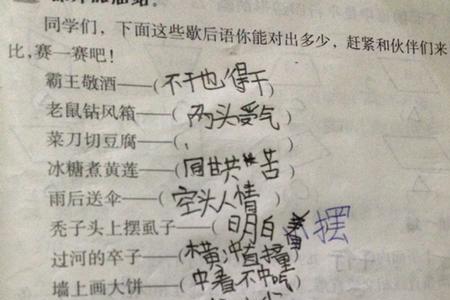 同学们，下面这些歇后语你能对出多少，赶紧和伙伴们来
比，赛一赛吧！
霸王敬酒——（不干也得干
老鼠钻风箱——（两头受气
菜刀切豆腐——（
冰糖煮黄莲——（同甘共苦
雨后送伞——（空头人情
秃子头上摆虱子——（明白摆
过河的卒子——（横冲直撞
墙上画大饼——（中看不中吃